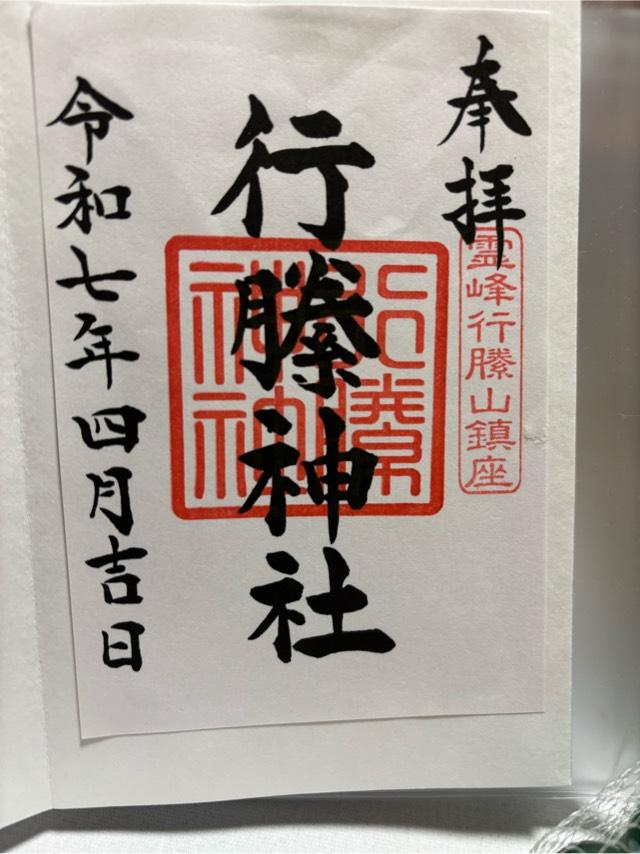 奉拝
霊峰行縢山鎮座
行縢神社
令和七年四月吉日